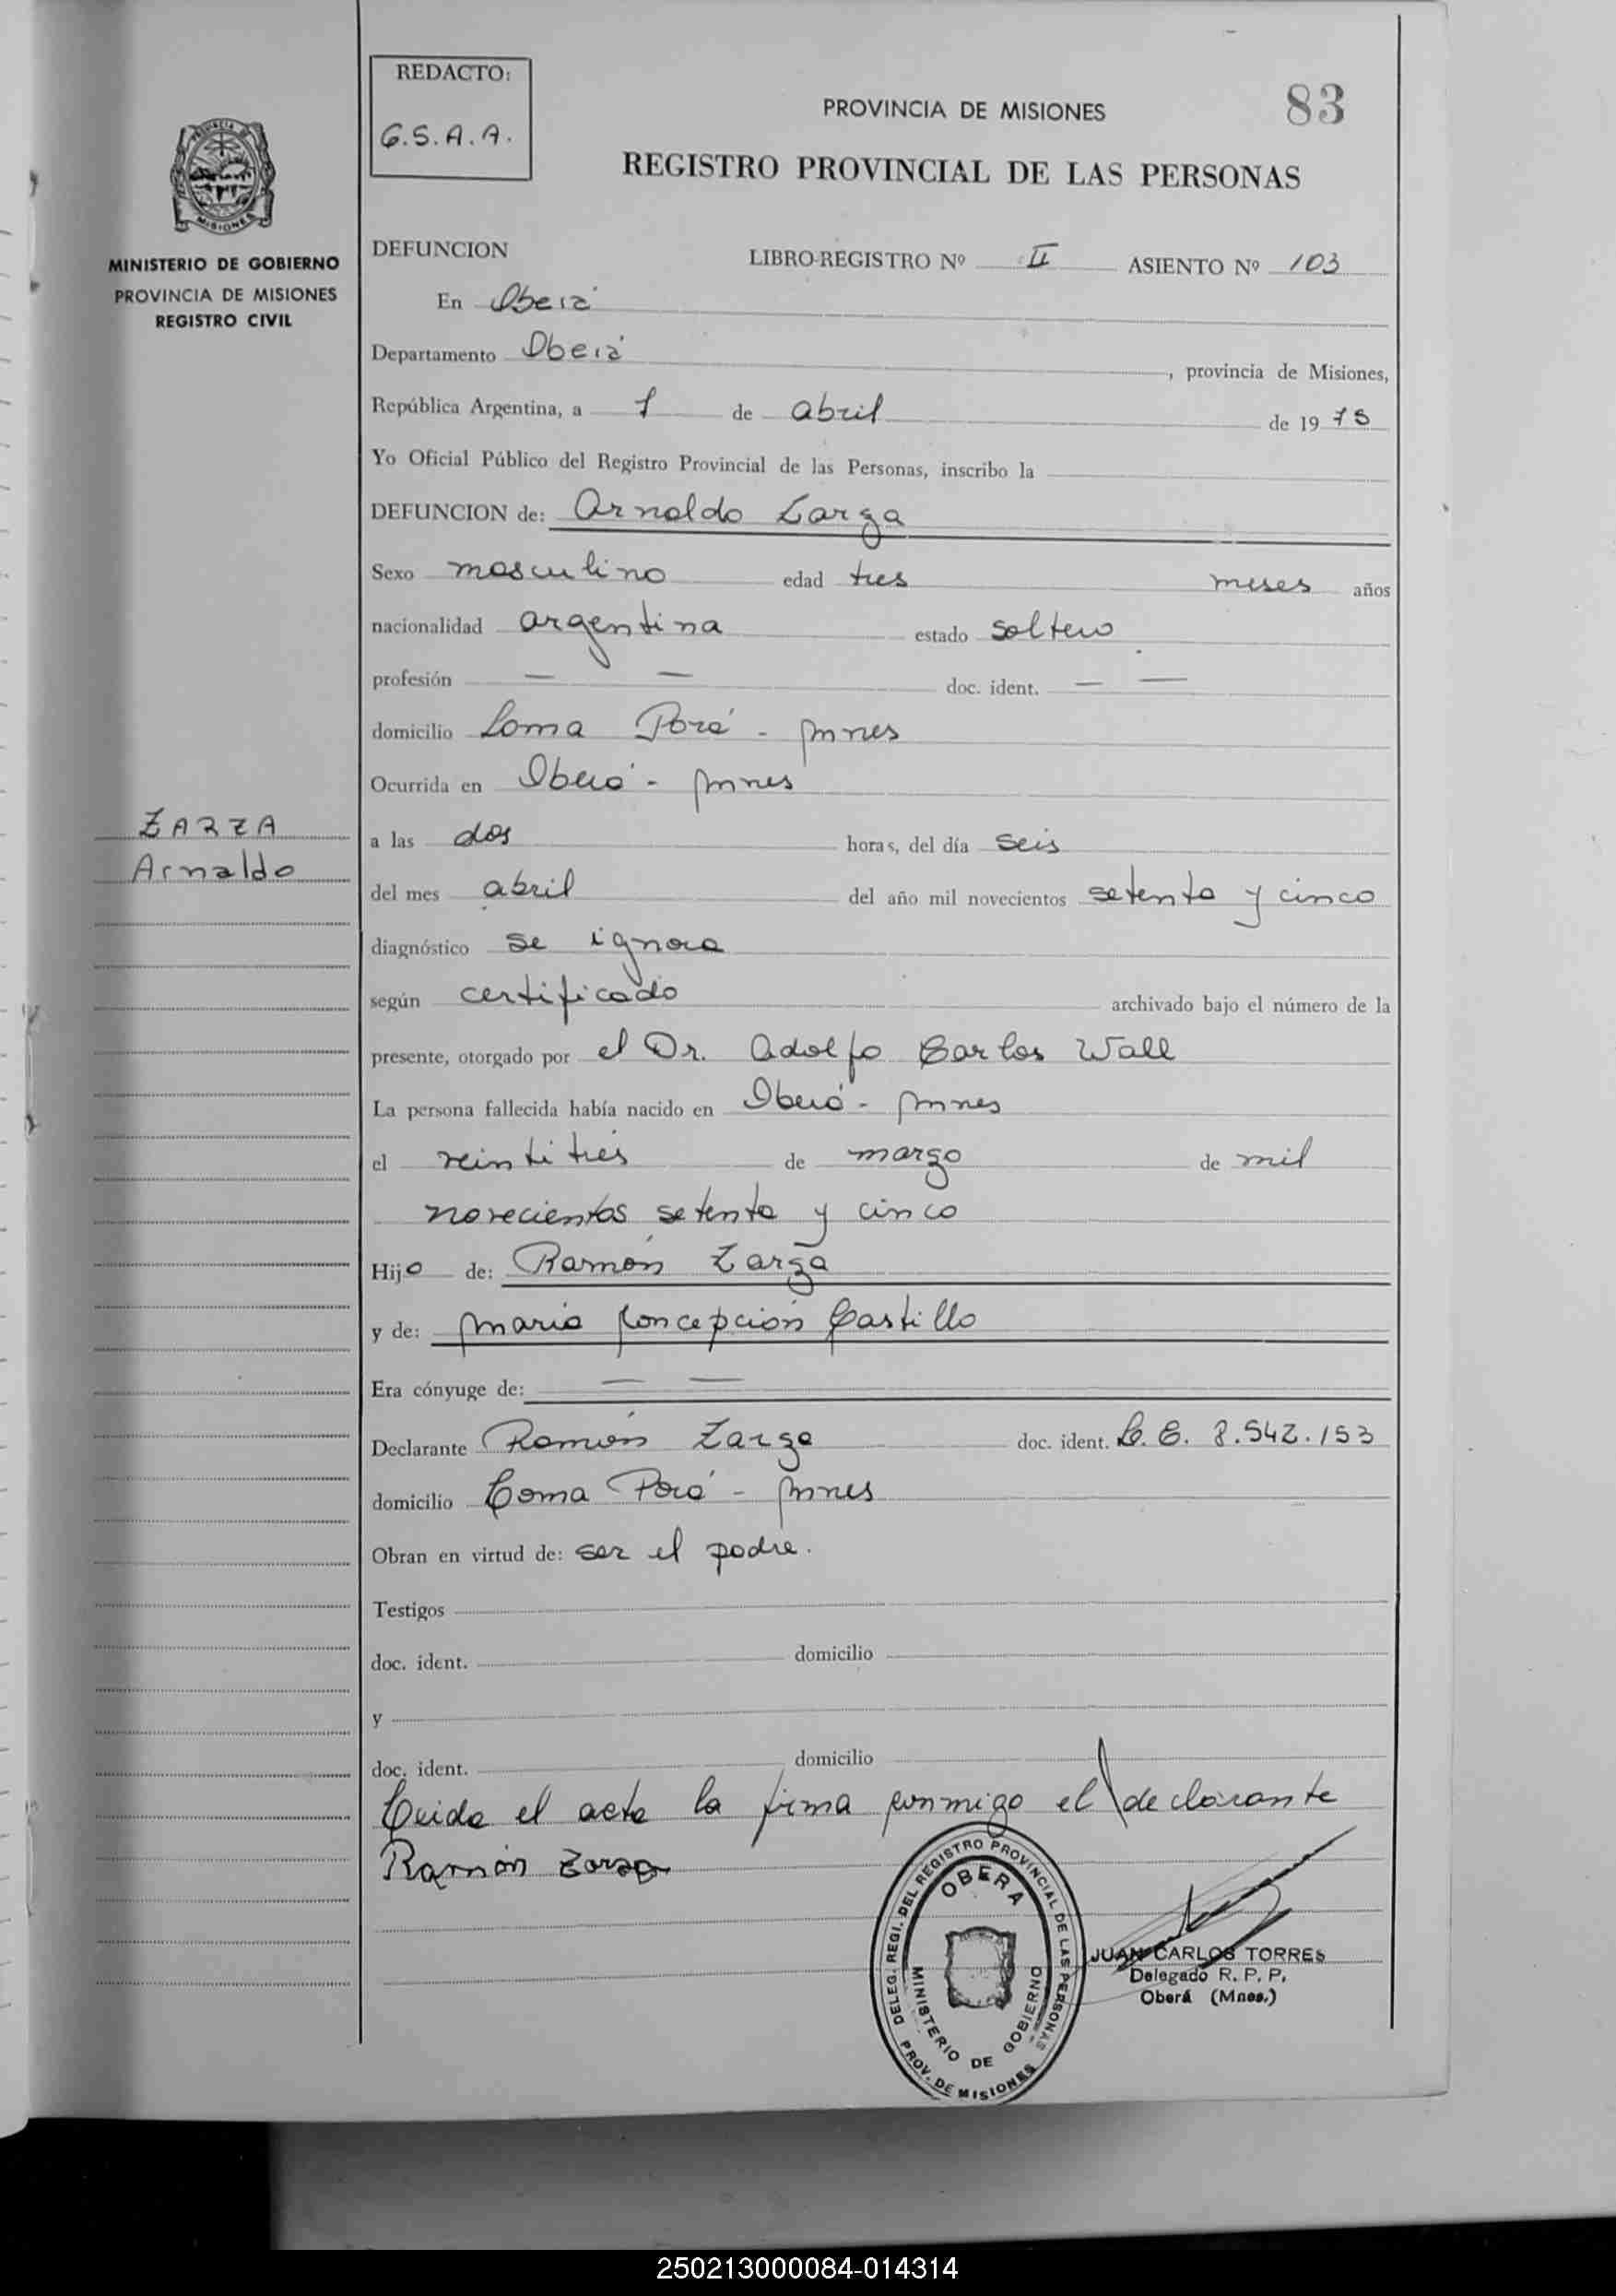 REDACTO:
G.S.A.A.
PROVINCIA DE MISIONES
83
REGISTRO PROVINCIAL DE LAS PERSONAS
MISIONES
MINISTERIO DE GOBIERNO
PROVINCIA DE MISIONES
REGISTRO CIVIL
DEFUNCION LIBRO-REGISTRO Nº II ASIENTO Nº 103
En Oberá
Departamento Oberá, provincia de Misiones,
República Argentina, a 7 de abril de 19 75
Yo Oficial Público del Registro Provincial de las Personas, inscribo la
DEFUNCION de: Arnaldo Zarza
Sexo masculino edad tres meses años
nacionalidad argentina estado soltero
profesión — — doc. ident. — —
domicilio Loma Porá - Mnes
Ocurrida en Oberá - Mnes
ZARZA
Arnaldo
a las dos horas, del día seis
del mes abril del año mil novecientos setenta y cinco
diagnóstico se ignora
según certificado archivado bajo el número de la
presente, otorgado por el Dr. Adolfo Carlos Wall
La persona fallecida había nacido en Oberá - Mnes
el veintitres de marzo de mil
novecientos setenta y cinco
Hijo de: Ramón Zarza
y de: María Concepción Castillo
Era cónyuge de: — —
Declarante Ramón Zarza doc. ident. L. E. 8.542.153
domicilio Loma Porá - Mnes
Obran en virtud de: ser el padre.
Testigos
doc. ident. domicilio
y
doc. ident. domicilio
Leida el acta la firma conmigo el declarante
Ramón Zarza
DELEG. REGI. DEL REGISTRO PROVINCIAL DE LAS PERSONAS
OBERA
MINISTERIO DE GOBIERNO
PROV. DE MISIONES
JUAN CARLOS TORRES
Delegado R. P. P.
Oberá (Mnes.)
250213000084-014314